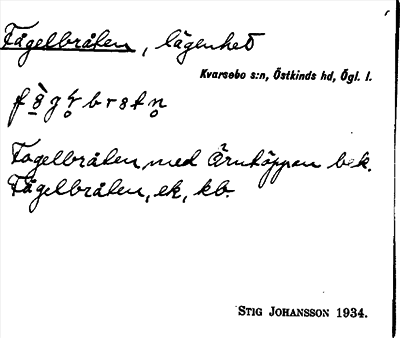 Fågelbråten, lägenhet
Kvarsebo s:n, Östkinds hd, Ögl. l.
Fogelbråten med Örnköppan bek.
Fågelbråten, ek, kb.
STIG JOHANSSON 1934.